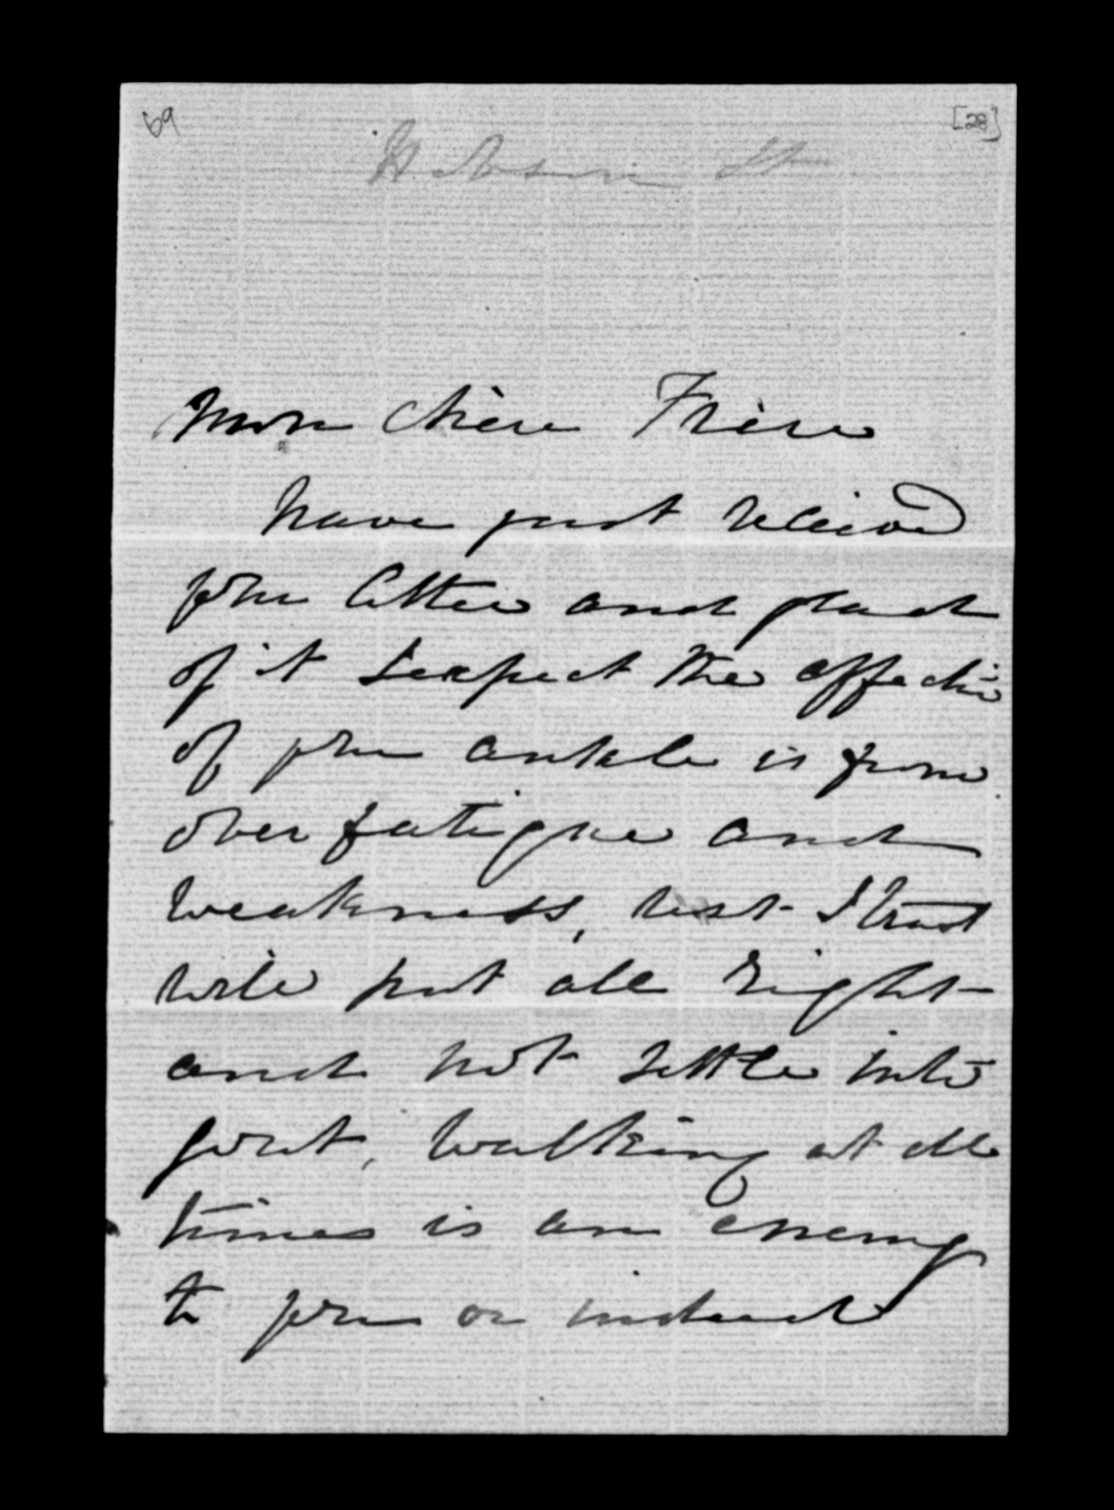 69
[28]
Mon chère Frère
have just received
your letter and glad
of it I expect the affectio
of your ankle is from
over fatigue and
weakness, rest I trust
will put all right
and not settle into
gout, walking at all
times is an enemy
to you or indeed